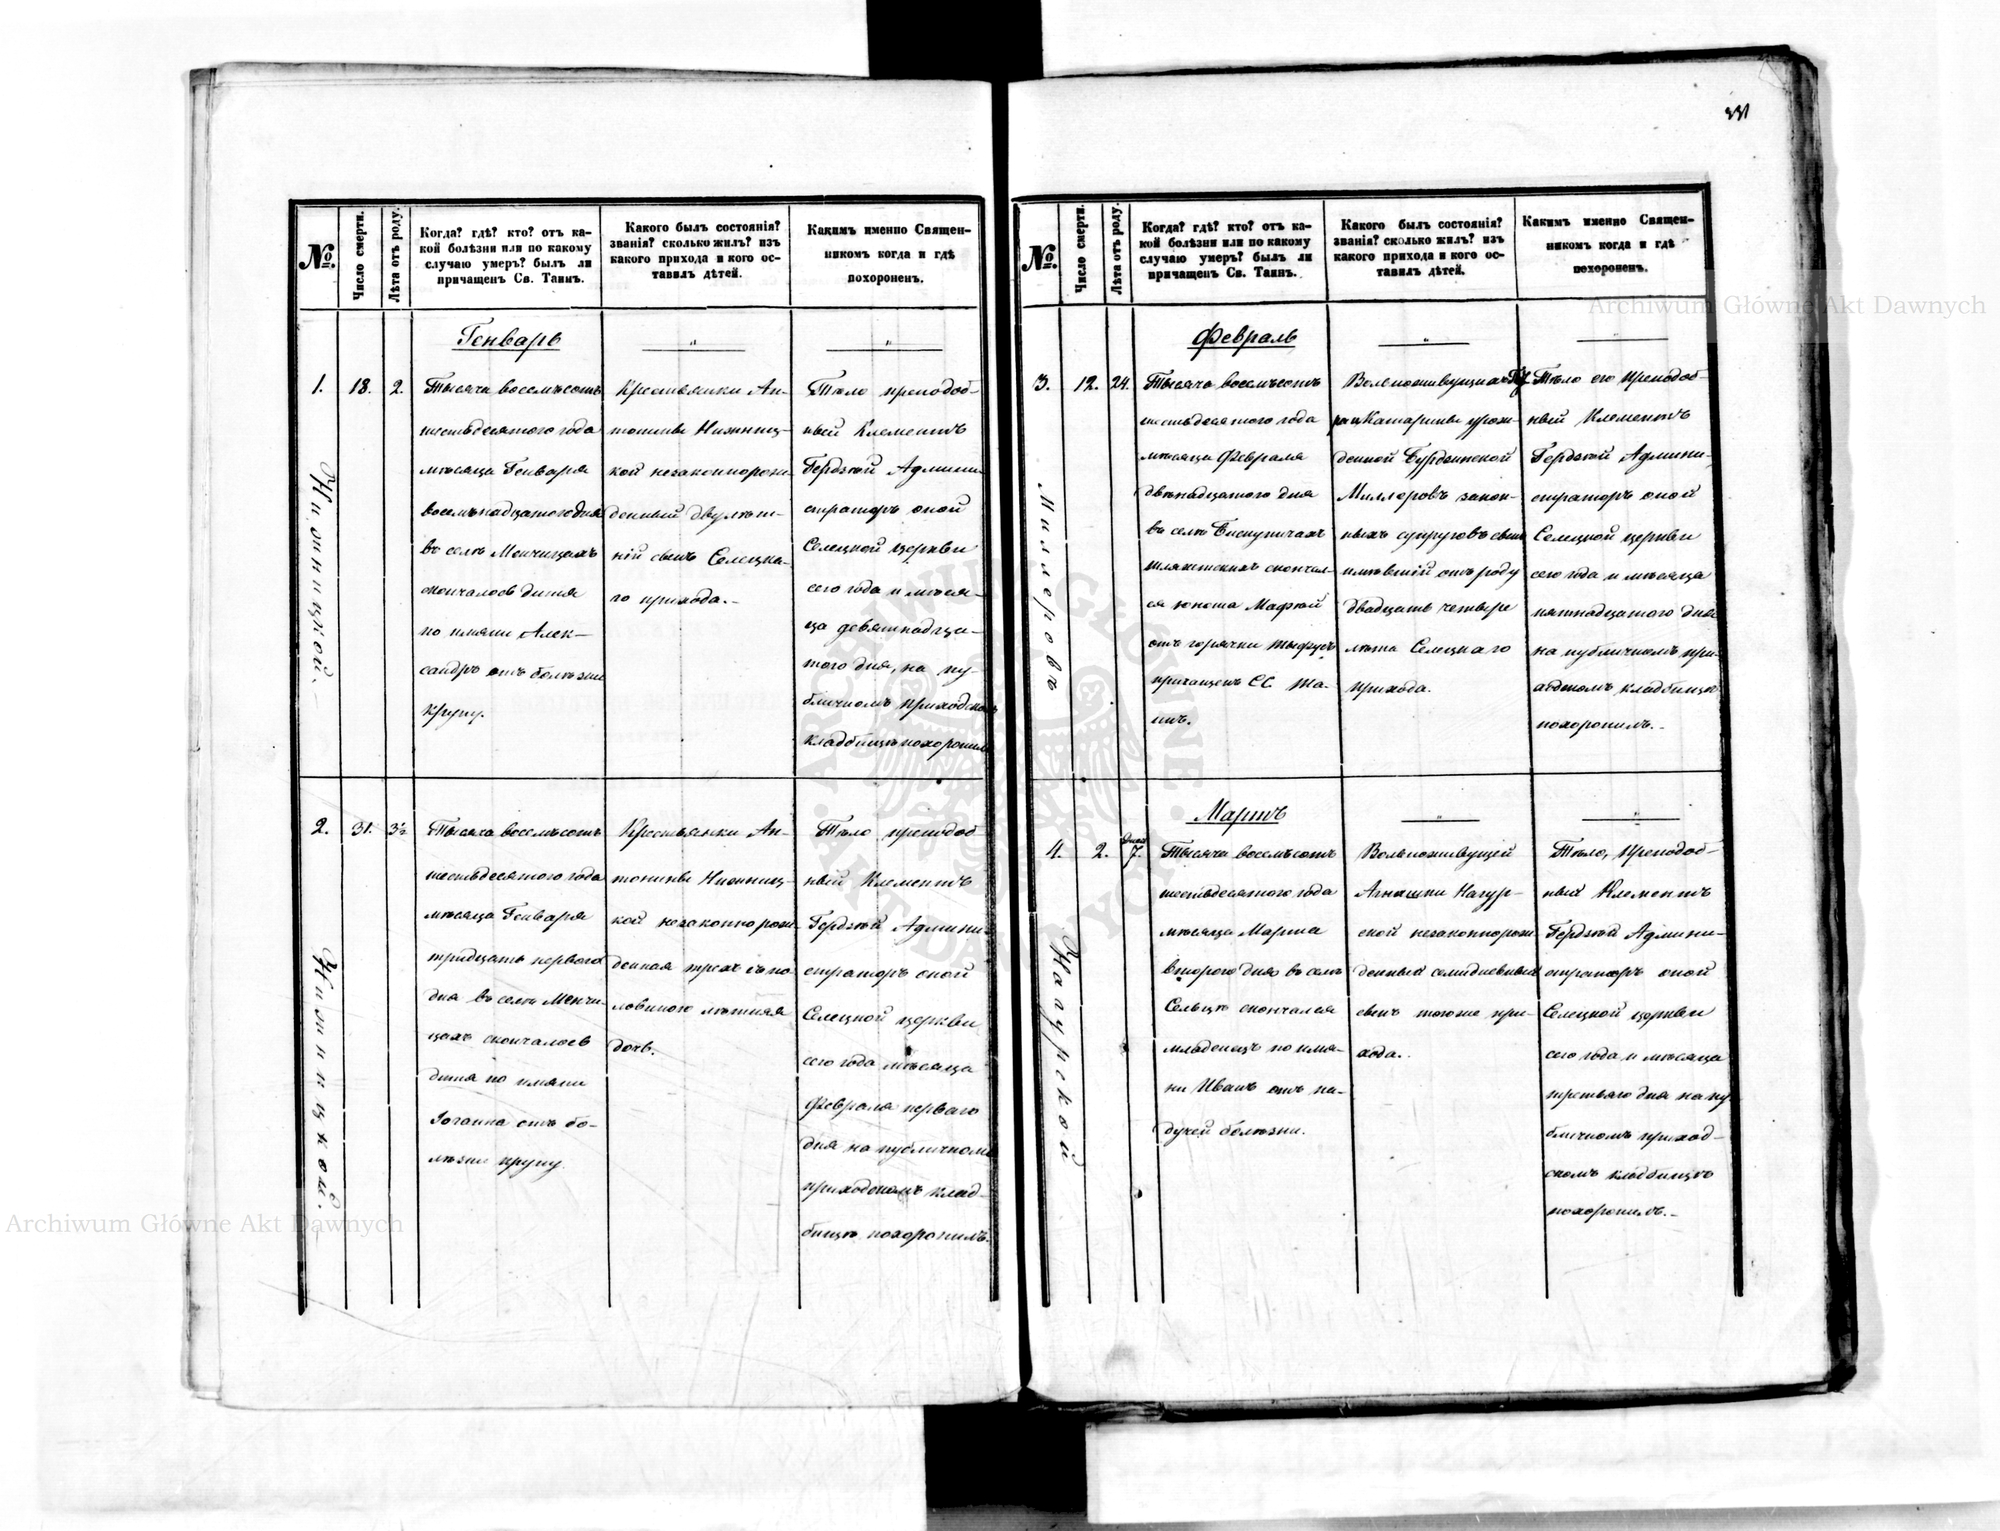 №.
Число смерти.
Лѣта отъ роду.
Когда? гдѣ? кто? отъ ка-
кой болѣзни или по какому
случаю умеръ? былъ ли
причащенъ Св. Таинъ.
Какого былъ состоянія?
званія? сколько жилъ? изъ
какого прихода и кого ос-
тавилъ дѣтей.
Какимъ именно Священ-
никомъ когда и гдѣ
похороненъ.
Генварь
1.
18.
2.
Тысяча восемьсотъ
шестьдесятого года
мѣсяца Генваря
восемьнадцатого дня
въ селѣ Менчицахъ
скончалось дитя
по имяни Алек-
сандръ отъ болѣзни
крупу.
Крестьянки Ан-
тонины
кой незаконнорож-
денный двулѣт-
ній сынъ Селецка-
го прихода.-
Тѣло преподоб-
ный Климентъ
Админи-
страторъ оной
Селецкой церкви
сего года и мѣся-
ца девятнадца-
того дня, на пу-
бличномъ приходскомъ
кладбищѣ похоронилъ
2.
31.
3½
Тысяча восемьсотъ
шестьдесятого года
мѣсяца Генваря
тридцать первого
дня въ селѣ Менчи-
цахъ скончалось
дитя по имяни
Іоганна отъ бо-
лѣзни крупу.
Крестьянки Ан-
тонины
кой незаконнорож-
денная трехъ съ по-
ловиною лѣтняя
дочь.
Тѣло преподоб
ный Климентъ
Админи-
страторъ оной
Селецкой церкви
сего года мѣсяца
Февраля перваго
дня на публичномъ
приходскомъ клад-
бищѣ похоронилъ.
№.
Число смерти.
Лѣта отъ роду.
Когда? гдѣ? кто? отъ ка-
кой болѣзни или по какому
случаю умеръ? былъ ли
причащенъ Св. Таинъ.
Какого былъ состоянія?
званія? сколько жилъ? изъ
какого прихода и кого ос-
тавилъ дѣтей.
Какимъ именно Священ-
никомъ когда и гдѣ
похороненъ.
Февраль
3.
12.
24.
Миллеровъ
Тысяча восемьсотъ
шестьдесятого года
мѣсяца Февраля
двѣнадцатого дня
въ селѣ Бискупичахъ
шляхетскихъ скончал-
ся юноша Матфей
отъ горячки тыфусъ
причащенъ СС. Та-
инъ.
Вольноживущихъ
и Катарины урож-
денной Бурдзинской
Миллеровъ закон-
ныхъ супруговъ сынъ
имѣвшій отъ роду
двадцать четыре
лѣта Селецкаго
прихода.
Тѣло его преподоб-
ный Климентъ
Админи-
страторъ оной
Селецкой церкви
сего года и мѣсяца
пятнадцатого дня
на публичномъ при-
ходскомъ кладбищѣ
похоронилъ.-
Мартъ
4.
2.
Дней
7.
Нагурской
Тысяча восемьсотъ
шестьдесятого года
мѣсяца Марта
второго дня въ селѣ
Сельцѣ скончался
младенецъ по имя-
ни Иванъ отъ па-
дучей болѣзни.
Вольноживущей
Агнешки Нагур-
ской незаконнорож-
денный семидневный
сынъ тогоже при-
хода.
Тѣло, преподоб-
ный Климентъ
Админи-
страторъ оной
Селецкой церкви
сего года и мѣсяца
третьяго дня на пу
бличномъ приход-
скомъ кладбищѣ
похоронилъ.-
Archiwum Główne Akt Dawnych
Archiwum Główne Akt Dawnych
ARCHIWUM GŁÓWNE
AKT DAWNYCH